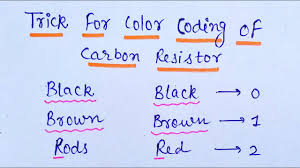 Trick For Color Coding OF
Carbon Resistor
Black Black → 0
Brown Brown → 1
Rods Red → 2